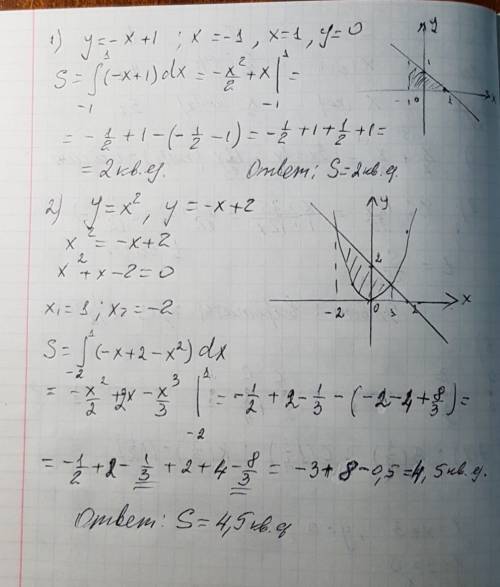 1) y=-x+1 ; x=-1, x=1, y=0
S=∫₋₁¹(-x+1)dx = -x²/2 + x |₋₁¹ =
= -1/2 + 1 - (-1/2 - 1) = -1/2 + 1 + 1/2 + 1 =
= 2 кв.ед. Ответ: S=2кв.ед
y
1
-1 0 1 x
2) y=x², y=-x+2
x² = -x+2
x²+x-2=0
x₁=1; x₂=-2
S=∫₋₂¹(-x+2-x²)dx
= -x²/2 + 2x - x³/3 |₋₂¹ = -1/2 + 2 - 1/3 - (-2-4+8/3) =
= -1/2 + 2 - 1/3 + 2 + 4 - 8/3 = -3+8-0,5=4,5кв.ед.
Ответ: S=4,5кв.ед
y
2
-2 0 1 2 x